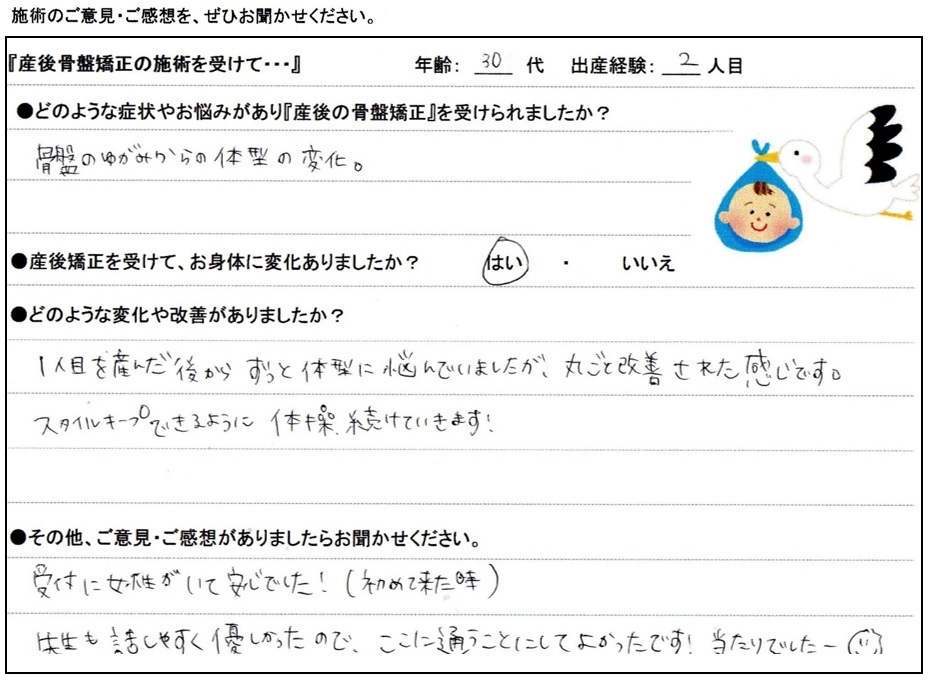 施術のご意見・ご感想を、ぜひお聞かせください。
『産後骨盤矯正の施術を受けて・・・』 年齢： 30 代 出産経験： 2 人目
●どのような症状やお悩みがあり『産後の骨盤矯正』を受けられましたか？
骨盤のゆがみからの体型の変化。
●産後矯正を受けて、お身体に変化ありましたか？ はい ・ いいえ
●どのような変化や改善がありましたか？
1人目を産んだ後からずっと体型に悩んでいましたが、丸ごと改善された感じです。
スタイルキープできるように体操、続けていきます！
●その他、ご意見・ご感想がありましたらお聞かせください。
受付に女性がいて安心でした！（初めて来た時）
先生も話しやすく優しかったので、ここに通うことにしてよかったです！当たりでしたー